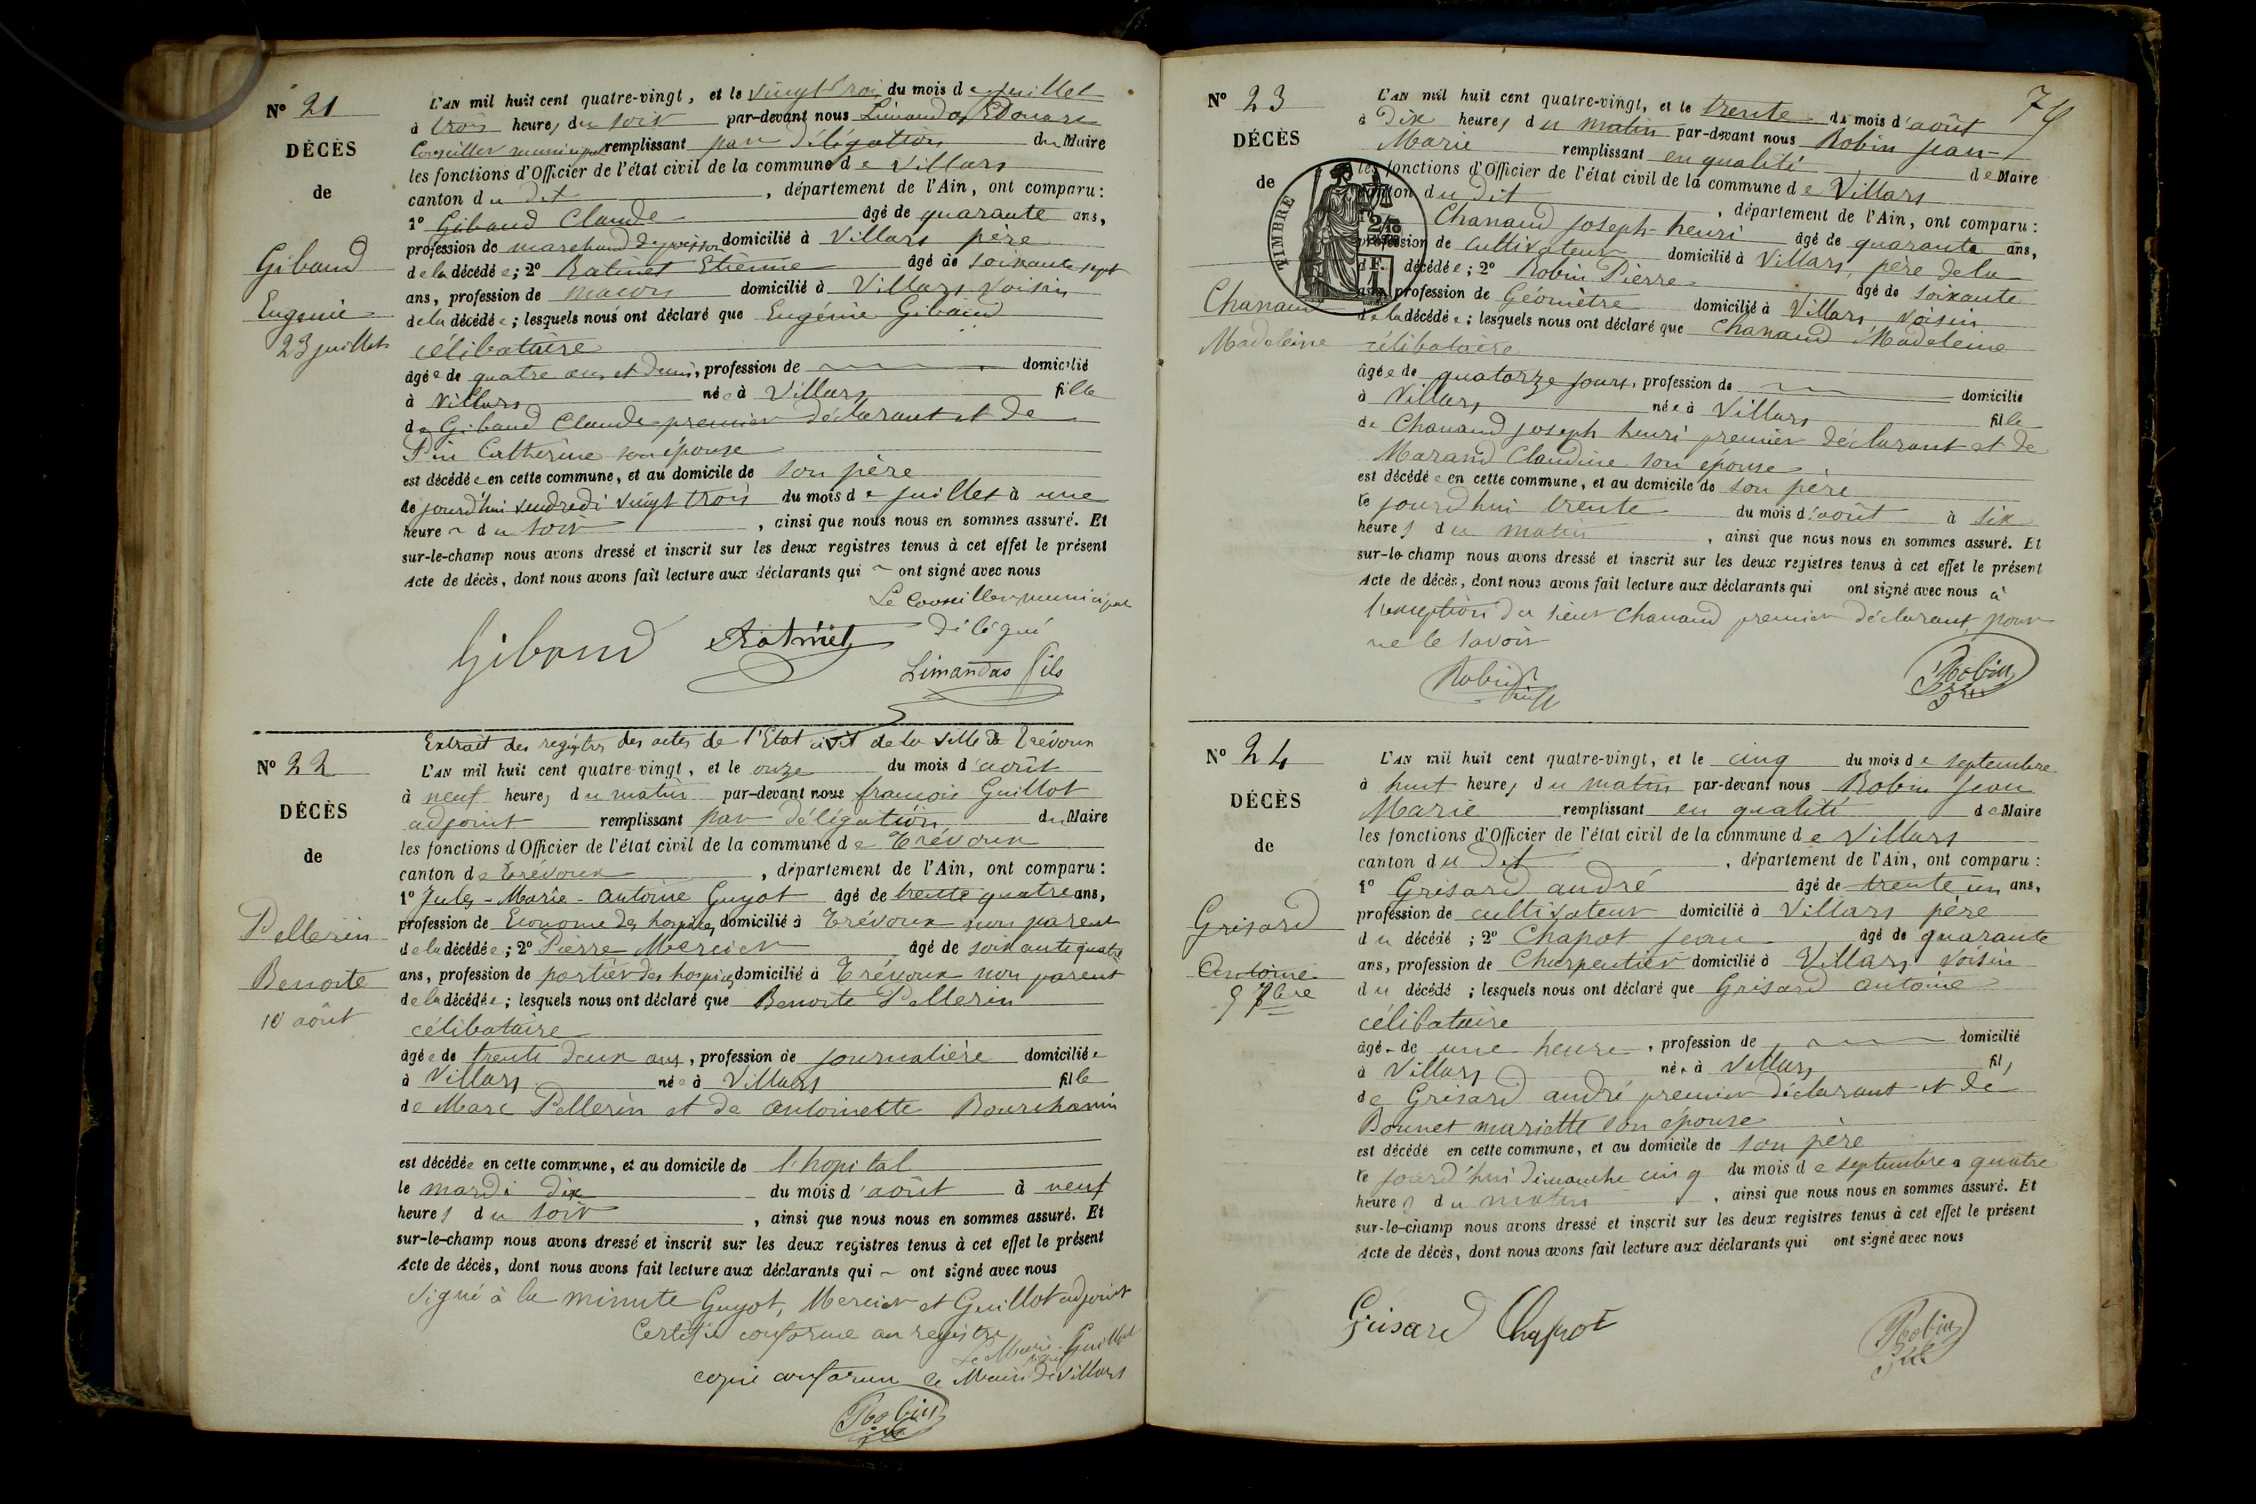 N° 21
DÉCÈS
de
Gibaud
Eugénie
23 juillet
L'AN mil huit cent quatre-vingt, et le vingt trois du mois de juillet
à trois heures du soir par-devant nous Limandas Edouard
Conseiller municipal remplissant par délégation du Maire
les fonctions d'Officier de l'état civil de la commune de Villars
canton du dit, département de l'Ain, ont comparu :
1° Gibaud Claude âgé de quarante ans,
profession de marchand de poisson domicilié à Villars père
de la décédée ; 2° Ratinet Etienne âgé de soixante sept
ans, profession de maçon domicilié à Villars voisin
de la décédée ; lesquels nous ont déclaré que Eugénie Gibaud
célibataire
âgée de quatre ans et demi, profession de domicilié
à Villars née à Villars fille
de Gibaud Claude premier déclarant et de
Pin Catherine son épouse
est décédée en cette commune, et au domicile de son père
le jourd'hui vendredi vingt trois du mois de juillet à une
heure du soir, ainsi que nous nous en sommes assuré. Et
sur-le-champ nous avons dressé et inscrit sur les deux registres tenus à cet effet le présent
Acte de décès, dont nous avons fait lecture aux déclarants qui ont signé avec nous
Le Conseiller municipal
délégué
Gibaud Ratinet
Limandas fils
Extrait des registres des actes de l'Etat civil de la ville de Trévoux
N° 22
DÉCÈS
de
Pellerin
Benoite
10 août
L'AN mil huit cent quatre-vingt, et le onze du mois d'août
à neuf heures du matin par-devant nous françois Guillot
adjoint remplissant par délégation du Maire
les fonctions d'Officier de l'état civil de la commune de Trévoux
canton de Trévoux, département de l'Ain, ont comparu :
1° Jules-Marie-Antoine Guyot âgé de trente quatre ans,
profession de Econome des hospices domicilié à Trévoux non parent
de la décédée ; 2° Pierre Mercier âgé de soixante quatre
ans, profession de portier des hospices domicilié à Trévoux non parent
de la décédée ; lesquels nous ont déclaré que Benoite Pellerin
célibataire
âgée de trente deux ans, profession de journalière domiciliée
à Villars née à Villars fille
de Marc Pellerin et de Antoinette Bourchanin
est décédée en cette commune, et au domicile de l'hopital
le mardi dix du mois d'août à neuf
heures du soir, ainsi que nous nous en sommes assuré. Et
sur-le-champ nous avons dressé et inscrit sur les deux registres tenus à cet effet le présent
Acte de décès, dont nous avons fait lecture aux déclarants qui ont signé avec nous
Signé à la minute Guyot, Mercier et Guillot adjoint
Certifié conforme au registre
Le Maire Guillot
copie conforme le Maire de Villars
Robin
79
N° 23
DÉCÈS
de
Chanaud
Madeleine
TIMBRE
L'AN mil huit cent quatre-vingt, et le trente du mois d'août
à dix heures du matin par-devant nous Robin Jean-
Marie remplissant en qualité de Maire
les fonctions d'Officier de l'état civil de la commune de Villars
canton du dit, département de l'Ain, ont comparu :
1° Chanaud Joseph-henri âgé de quarante ans,
profession de cultivateur domicilié à Villars, père de la
décédée ; 2° Robin Pierre âgé de soixante
ans, profession de Géomètre domicilié à Villars voisin
de la décédée ; lesquels nous ont déclaré que Chanaud Madeleine
célibataire
âgée de quatorze jours, profession de domicilié
à Villars née à Villars fille
de Chanaud joseph henri premier déclarant et de
Marand Claudine son épouse
est décédée en cette commune, et au domicile de son père
le jourd'hui trente du mois d'août à six
heures du matin, ainsi que nous nous en sommes assuré. Et
sur-le-champ nous avons dressé et inscrit sur les deux registres tenus à cet effet le présent
Acte de décès, dont nous avons fait lecture aux déclarants qui ont signé avec nous à
l'exception du sieur Chanaud premier déclarant, pour
ne le savoir
Robin Robin
N° 24
DÉCÈS
de
Grisard
Antoine
5 7bre
L'AN mil huit cent quatre-vingt, et le cinq du mois de septembre
à huit heures du matin par-devant nous Robin Jean
Marie remplissant en qualité de Maire
les fonctions d'Officier de l'état civil de la commune de Villars
canton du dit, département de l'Ain, ont comparu :
1° Grisard André âgé de trente un ans,
profession de cultivateur domicilié à Villars père
du décédé ; 2° Chapot Jean âgé de quarante
ans, profession de Charpentier domicilié à Villars voisin
du décédé ; lesquels nous ont déclaré que Grisard Antoine
célibataire
âgé de une heure, profession de domicilié
à Villars né à Villars fils
de Grisard André premier déclarant et de
Bonnet mariette son épouse
est décédé en cette commune, et au domicile de son père
le jourd'hui dimanche cinq du mois de septembre à quatre
heures du matin, ainsi que nous nous en sommes assuré. Et
sur-le-champ nous avons dressé et inscrit sur les deux registres tenus à cet effet le présent
Acte de décès, dont nous avons fait lecture aux déclarants qui ont signé avec nous
Grisard Chapot Robin